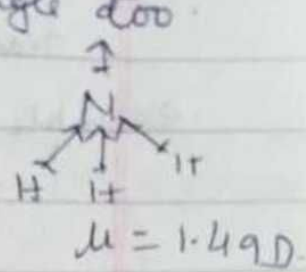 doo
N
H H H
μ = 1.49D